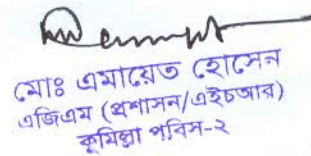 মোঃ এমায়েত হোসেন
এজিএম (প্রশাসন/এইচআর)
কুমিল্লা পবিস-২